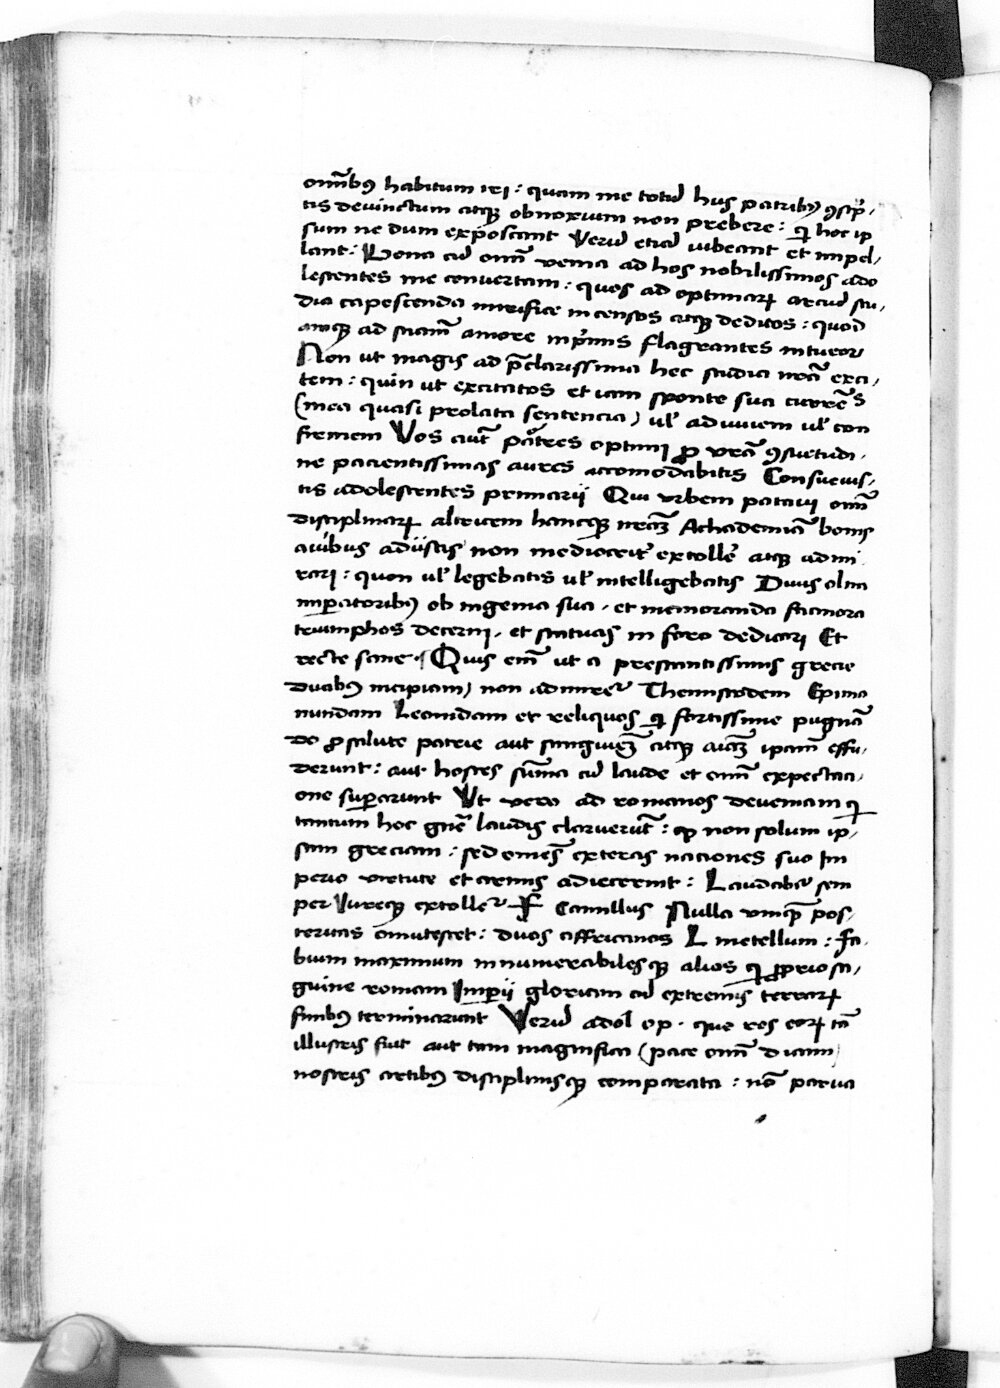 om̄ibꝰ habitum iri : quam me totū huiꝰ patribꝰ ꝯscrip-
tis devinctum atqꝫ obnoxium non prebere : qi hoc ip
sum ne dum exposcant Verū etiā iubeant et impel-
lant : Bona cū om̄i venia ad hos nobilissimos ado
lescentes me convertam : quos ad optimaꝝ arciū stu-
dia capescenda mirifice incensos atqꝫ deditos : quod
amore inprimis flagrantes intueor
Non ut magis ad p̄clarissima hec studia nr̄a exci-
tem : quin ut excitatos et iam sponte sua currētes
(mea quasi prolata sentencia) ul' adiuvem ul' con
firmem Vos aut̄ patres optimi ꝓ vr̄a ꝯsuetudi-
ne pacientissimas aures accomodabitis Consuevis-
tis adolescentes primarii Qui urbem patavi om̄i
disciplinaꝝ altricem hancqꝫ nr̄am Achademiā bonis
avibus adiistis non mediocrit' extolle' atqꝫ admi
rari : quon ul' legebatis ul' intelligebatis Divis olim
imperatoribꝰ ob ingenia sua · et memoranda facinora
triumphos decerni · et statuas in foro dedicari Et
recte sane (Quis eni' ut a prestantissimis grecie
ducibꝰ incipiam) non admire' Themistodem Epima
nundam Leonidam et reliquos qi fortissime pugnā
do ꝓ salute patrie aut sanguinē atqꝫ aiam ipam effu-
derunt : aut hostes sum̄a cū laude et om̄i expectaci-
one superarunt Ut vero ad romanos deveniam qi
tantum hoc gn̄e laudis claruerūt : qꝫ non solum ip-
sam greciam : sed omēs exteras naciones suo Im
perio virtute et armis adiecerint : Laudabi' sem
per Iureqꝫ extolle' F Camillus Nulla vnqꝫ pos-
teritas om̄utescet : duos affricanos L metellum : fa-
bium maximum innumerabilesqꝫ alios qi ꝓprio sa-
guine romani Imperii gloriam cū extremis terraꝝ
finibꝰ terminarunt Verū adol op · que res eoꝝ tā
illustris fuit aut tam magnifica (pace om̄i dicam)
nostris artibꝰ disciplinisqꝫ comparata : nō parva